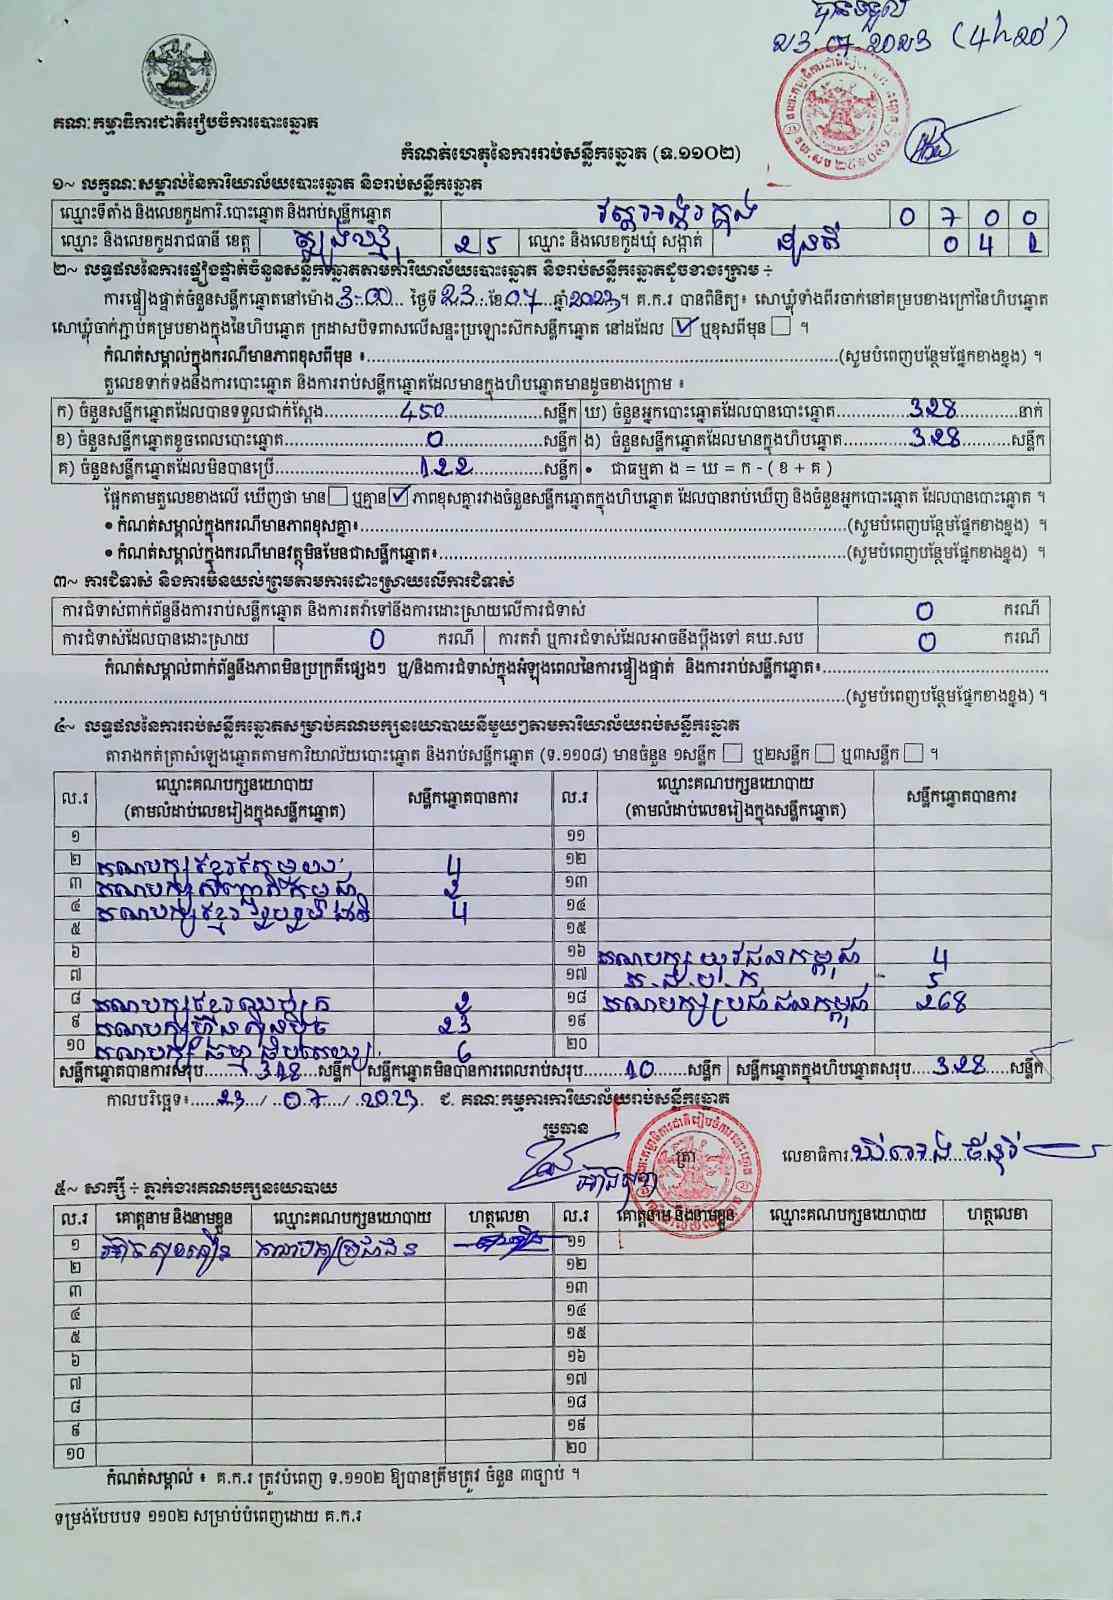 បានទទួល
២3.07.2០២3 (4h20)
គណៈកម្មាធិការជាតិរៀបចំការបោះឆ្នោត
កំណត់ហេតុនៃការរាប់សន្លឹកឆ្នោត (ទ.១១០២)
១~ លក្ខណៈសម្គាល់នៃការិយាល័យបោះឆ្នោត និងរាប់សន្លឹកឆ្នោត
ឈ្មោះទីតាំង និងលេខកូដការិ.បោះឆ្នោត និងរាប់សន្លឹកឆ្នោត 0 7 0 0
ឈ្មោះ និងលេខកូដរាជធានី ខេត្ត ត្បូងឃ្មុំ 2 5 ឈ្មោះ និងលេខកូដឃុំ សង្កាត់ 0 4 1
២~ លទ្ធផលនៃការផ្ទៀងផ្ទាត់ចំនួនសន្លឹកឆ្នោតតាមការិយាល័យបោះឆ្នោត និងរាប់សន្លឹកឆ្នោតដូចខាងក្រោម ÷
ការផ្ទៀងផ្ទាត់ចំនួនសន្លឹកឆ្នោតនៅម៉ោង 3:00 ថ្ងៃទី 23 ខែ 07 ឆ្នាំ 2023 ។ គ.ក.រ បានពិនិត្យ៖ សោឃ្លុំទាំងពីរចាក់នៅគម្របខាងក្រៅនៃហិបឆ្នោត
សោឃ្លុំចាក់ភ្ជាប់គម្របខាងក្នុងនៃហិបឆ្នោត ក្រដាសបិទពាសលើសន្ទះប្រឡោះស៊កសន្លឹកឆ្នោត នៅដដែល ☑ ឬខុសពីមុន ☐ ។
កំណត់សម្គាល់ក្នុងករណីមានភាពខុសពីមុន ៖ (សូមបំពេញបន្ថែមផ្នែកខាងខ្នង) ។
តួលេខទាក់ទងនឹងការបោះឆ្នោត និងការរាប់សន្លឹកឆ្នោតដែលមានក្នុងហិបឆ្នោតមានដូចខាងក្រោម ៖
ក) ចំនួនសន្លឹកឆ្នោតដែលបានទទួលជាក់ស្តែង 450 សន្លឹក ឃ) ចំនួនអ្នកបោះឆ្នោតដែលបានបោះឆ្នោត 328 នាក់
ខ) ចំនួនសន្លឹកឆ្នោតខូចពេលបោះឆ្នោត 0 សន្លឹក ង) ចំនួនសន្លឹកឆ្នោតដែលមានក្នុងហិបឆ្នោត 328 សន្លឹក
គ) ចំនួនសន្លឹកឆ្នោតដែលមិនបានប្រើ 122 សន្លឹក • ជាធម្មតា ង = ឃ = ក - ( ខ + គ )
ផ្អែកតាមតួលេខខាងលើ ឃើញថា មាន ☐ ឬគ្មាន ☑ ភាពខុសគ្នារវាងចំនួនសន្លឹកឆ្នោតក្នុងហិបឆ្នោត ដែលបានរាប់ឃើញ និងចំនួនអ្នកបោះឆ្នោត ដែលបានបោះឆ្នោត ។
• កំណត់សម្គាល់ក្នុងករណីមានភាពខុសគ្នា៖ (សូមបំពេញបន្ថែមផ្នែកខាងខ្នង) ។
• កំណត់សម្គាល់ក្នុងករណីមានវត្ថុមិនមែនជាសន្លឹកឆ្នោត៖ (សូមបំពេញបន្ថែមផ្នែកខាងខ្នង) ។
៣~ ការជំទាស់ និងការមិនយល់ព្រមតាមការដោះស្រាយលើការជំទាស់
ការជំទាស់ពាក់ព័ន្ធនឹងការរាប់សន្លឹកឆ្នោត និងការតវ៉ាទៅនឹងការដោះស្រាយលើការជំទាស់ 0 ករណី
ការជំទាស់ដែលបានដោះស្រាយ 0 ករណី ការតវ៉ា ឬការជំទាស់ដែលអាចនឹងប្តឹងទៅ គឃ.សប 0 ករណី
កំណត់សម្គាល់ពាក់ព័ន្ធនឹងភាពមិនប្រក្រតីផ្សេងៗ ឬ/និងការជំទាស់ក្នុងអំឡុងពេលនៃការផ្ទៀងផ្ទាត់ និងការរាប់សន្លឹកឆ្នោត៖
(សូមបំពេញបន្ថែមផ្នែកខាងខ្នង) ។
៤~ លទ្ធផលនៃការរាប់សន្លឹកឆ្នោតសម្រាប់គណបក្សនយោបាយនីមួយៗតាមការិយាល័យរាប់សន្លឹកឆ្នោត
តារាងកត់ត្រាសំឡេងឆ្នោតតាមការិយាល័យបោះឆ្នោត និងរាប់សន្លឹកឆ្នោត (ទ.១១០៨) មានចំនួន ១សន្លឹក ☐ ឬ២សន្លឹក ☐ ឬ៣សន្លឹក ☐ ។
ល.រ ឈ្មោះគណបក្សនយោបាយ (តាមលំដាប់លេខរៀងក្នុងសន្លឹកឆ្នោត) សន្លឹកឆ្នោតបានការ ល.រ ឈ្មោះគណបក្សនយោបាយ (តាមលំដាប់លេខរៀងក្នុងសន្លឹកឆ្នោត) សន្លឹកឆ្នោតបានការ
១ ១១
២ គណបក្ស 4 ១២
៣ គណបក្ស 2 ១៣
៤ គណបក្សខ្មែររួបរួមជាតិ 4 ១៤
៥ ១៥
៦ ១៦ គណបក្សយុវជនកម្ពុជា 4
៧ ១៧ 5
៨ គណបក្ស 2 ១៨ គណបក្សប្រជាជនកម្ពុជា 268
៩ គណបក្សហ៊្វុនស៊ិនប៉ិច 23 ១៩
១០ គណបក្សធម្មាធិបតេយ្យ 6 ២០
សន្លឹកឆ្នោតបានការសរុប 318 សន្លឹក សន្លឹកឆ្នោតមិនបានការពេលរាប់សរុប 10 សន្លឹក សន្លឹកឆ្នោតក្នុងហិបឆ្នោតសរុប 328 សន្លឹក
កាលបរិច្ឆេទ៖ 23 / 07 / 2023 ជ. គណៈកម្មការការិយាល័យរាប់សន្លឹកឆ្នោត
ប្រធាន ត្រា លេខាធិការ
៥~ សាក្សី ÷ ភ្នាក់ងារគណបក្សនយោបាយ
ល.រ គោត្តនាម និងនាមខ្លួន ឈ្មោះគណបក្សនយោបាយ ហត្ថលេខា ល.រ គោត្តនាម និងនាមខ្លួន ឈ្មោះគណបក្សនយោបាយ ហត្ថលេខា
១ គណបក្សប្រជាជន ១១
២ ១២
៣ ១៣
៤ ១៤
៥ ១៥
៦ ១៦
៧ ១៧
៨ ១៨
៩ ១៩
១០ ២០
កំណត់សម្គាល់ ៖ គ.ក.រ ត្រូវបំពេញ ទ.១១០២ ឱ្យបានត្រឹមត្រូវ ចំនួន ៣ច្បាប់ ។
ទម្រង់បែបបទ ១១០២ សម្រាប់បំពេញដោយ គ.ក.រ